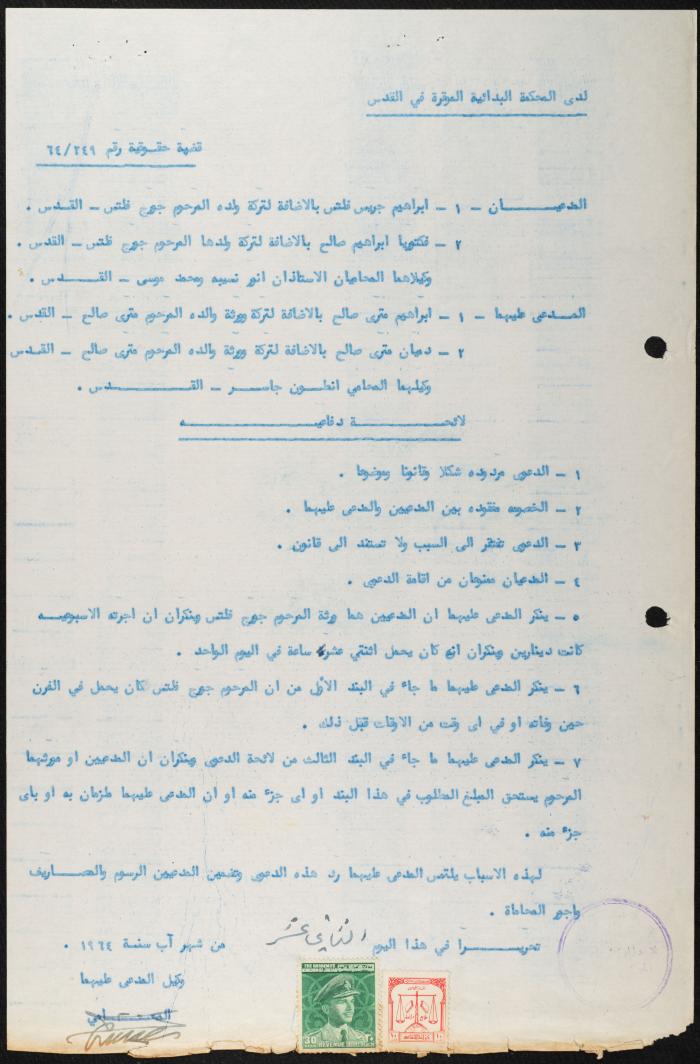 لدى المحكمة البدائية الموقرة في القدس
قضية حقوقية رقم ٦٤/٢٤٩
المدعيــــان – ١ – ابراهيم جريس فلتس بالاضافة لتركة ولده المرحوم جورج فلتس – القدس .
٢ – فكتوريا ابراهيم صالح بالاضافة لتركة ولدها المرحوم جورج فلتس – القدس .
وكيلاهما المحاميان الاستاذان انور نسيبه ومحمد موسى – القـــدس .
المــدعى عليهما – ١ – ابراهيم متري صالح بالاضافة لتركة وورثة والده المرحوم متري صالح – القدس .
٢ – دميان متري صالح بالاضافة لتركة وورثة والده المرحوم متري صالح – القدس
وكيلهما المحامي انطــون جاســـر – القــــدس .
لائحـــــــة دفاعيـــــــه
١ – الدعوى مردوده شكلا وقانونا وموضوعا .
٢ – الخصومه مفقوده بين المدعيين والمدعى عليهما .
٣ – الدعوى تفتقر الى السبب ولا تستند الى قانون .
٤ – المدعيان ممنوعان من اقامة الدعوى .
٥ – ينكر المدعى عليهما ان المدعيين هما ورثة المرحوم جورج فلتس وينكران ان اجرته الاسبوعيــه
كانت دينارين وينكران انه كان يعمل اثنتي عشرة ساعة في اليوم الواحد .
٦ – ينكر المدعى عليهما ما جاء في البند الأول من ان المرحوم جورج فلتس كان يعمل في الفرن
حين وفاته او في اى وقت من الاوقات قبل ذلك .
٧ – ينكر المدعى عليهما ما جاء في البند الثالث من لائحة الدعوى وينكران ان المدعيين او مورثهما
المرحوم يستحق المبلغ المطلوب في هذا البند او اى جزء منه او ان المدعى عليهما ملزمان به او باى
جزء منه .
لهذه الاسباب يلتمس المدعى عليهما رد هذه الدعوى وتضمين المدعيين الرسوم والمصـاريف
واجور المحاماة .
تحريـــــرا في هذا اليوم الثاني عشر من شهر آب سنة ١٩٦٤ .
وكيل المدعى عليهما
المحـــامي
THE HASHEMITE
KINGDOM OF JORDAN
30
٣٠
REVENUE